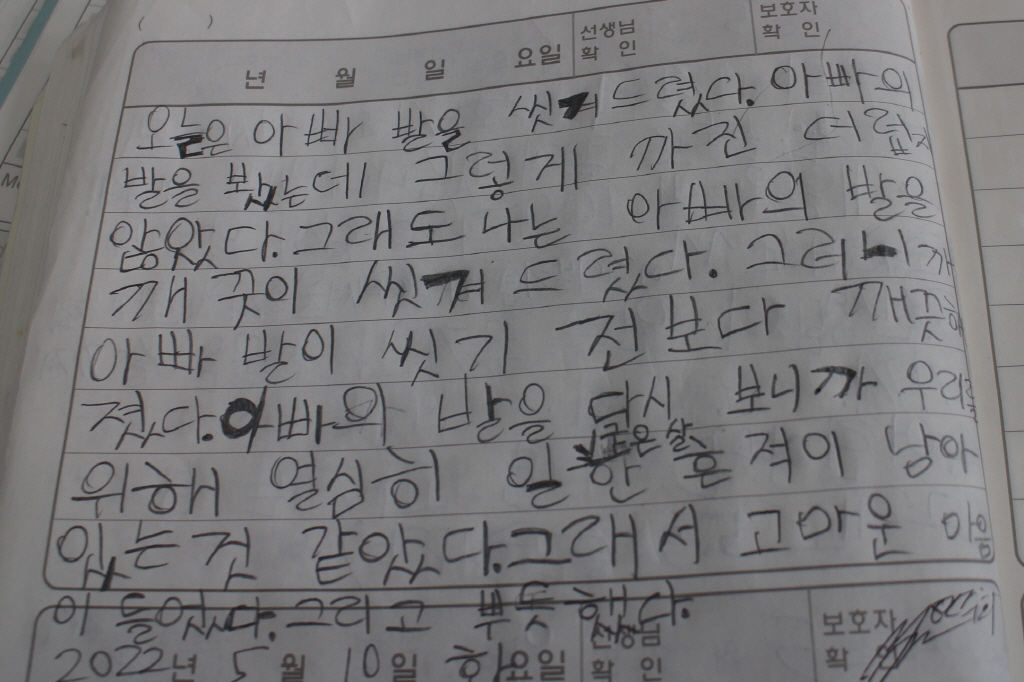 ( )
년 월 일 요일 선생님 확 인 보호자 확 인
오늘은 아빠 발을 씻겨 드렸다. 아빠의
발을 봤는데 그렇게 까진 더럽지
않았다. 그래도 나는 아빠의 발을
깨끗이 씻겨 드렸다. 그러니까
아빠 발이 씻기 전보다 깨끗해
졌다. 아빠의 발을 다시 보니까 우리를
위해 열심히 일한 굳은살 흔적이 남아
있는 것 같았다. 그래서 고마운 마음
이 들었다. 그리고 뿌듯했다.
2022년 5월 10일 화요일 선생님 확 인 보호자 확